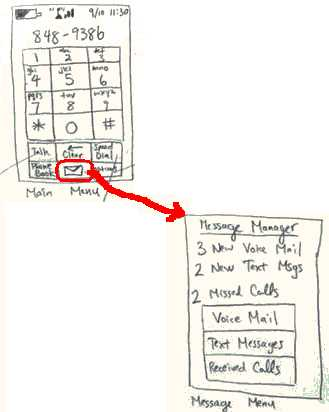 9/10 11:30
848-9386
1 abc 2 def 3
ghi 4 jkl 5 mno 6
pqrs 7 tuv 8 wxyz 9
* 0 #
Talk Clear Speed Dial
Phone Book
Main Menu
Message Manager
3 New Voice Mail
2 New Text Msgs
2 Missed Calls
Voice Mail
Text Messages
Received Calls
Message Menu